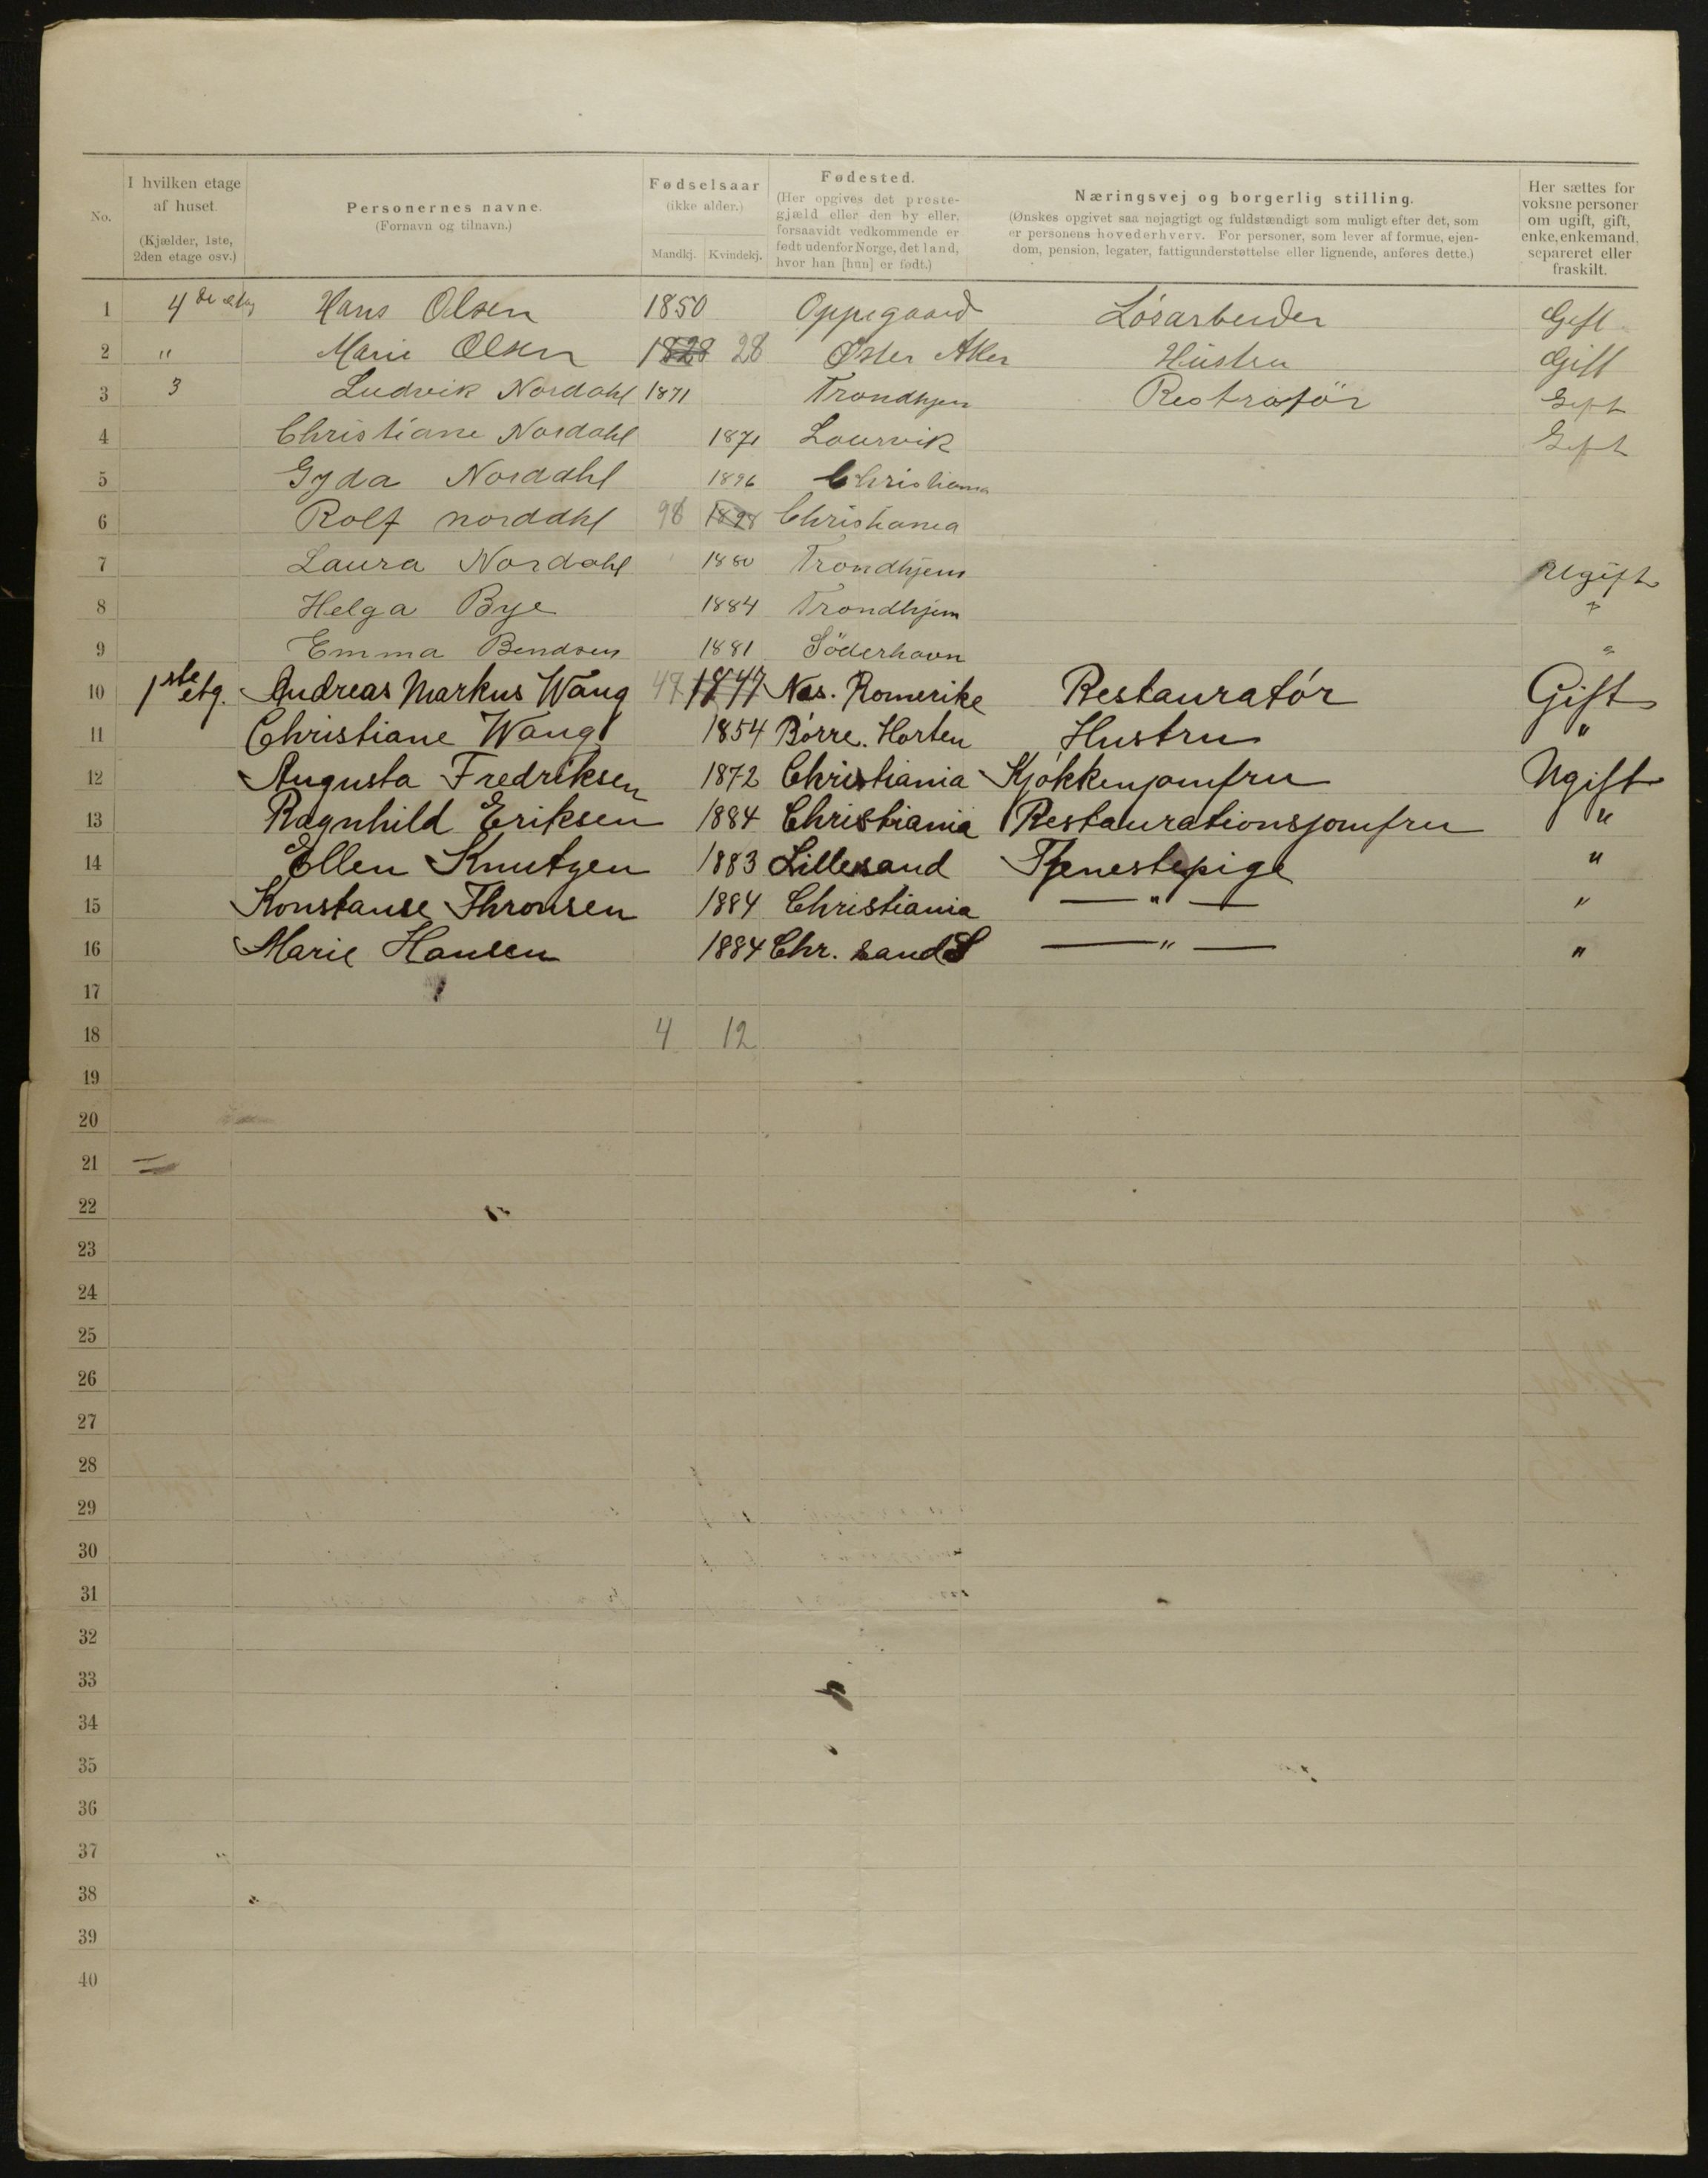 No.
I hvilken etage
af huset.
(Kjælder, 1ste,
2den etage osv.)
Personernes navne.
(Fornavn og tilnavn.)
Fødselsaar
(ikke alder.)
Mandkj. Kvindekj.
Fødested.
(Her opgives det preste-
gjæld eller den by eller,
forsaavidt vedkommende er
født udenfor Norge, det land,
hvor han [hun] er født.)
Næringsvej og borgerlig stilling.
(Ønskes opgivet saa nøjagtigt og fuldstændigt som muligt efter det, som
er personens hovederhverv. For personer, som lever af formue, ejen-
dom, pension, legater, fattigunderstøttelse eller lignende, anføres dette.)
Her sættes for
voksne personer
om ugift, gift,
enke, enkemand,
separeret eller
fraskilt.
1 4de etag Hans Olsen 1850 Oppegaard Løsarbeider Gift
2 " Marie Olsen 1828 28 Øster Aker Hustru Gift
3 3 Ludvik Nordahl 1871 Trondhjem Restratør Gift
4 Christiane Nordahl 1871 Laurvik Gift
5 Gyda Norddhl 1896 Christiania
6 Rolf norddhl 98 1898 Christiania
7 Laura Nordahl 1880 Trondhjem Ugift
8 Helga Bye 1884 Trondhjem "
9 Emma Bendsen 1881 Söderhavn "
10 1ste etg. Andreas Markus Wang 47 1847 Nes. Romerike Restauratór Gift
11 Christiane Wang 1854 Bórre. Horten Hustru "
12 Augusta Fredriksen 1872 Christiania Kjókkenjomfru Ugift
13 Ragnhild Eriksen 1884 Christiania Restaurationsjomfru "
14 Ellen Knutzen 1883 Lillesand Tjenestepige "
15 Konstanse Thronsen 1884 Christiania — " — "
16 Marie Hansen 1884 Chr. sand S — " — "
17
18 4 12
19
20
21
22
23
24
25
26
27
28
29
30
31
32
33
34
35
36
37
38
39
40